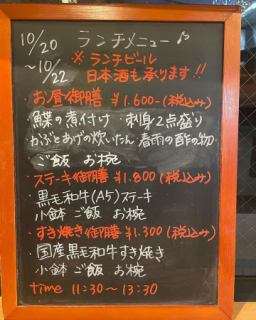 10/20 ランチメニュー♪
~10/22 ※ランチビール
日本酒も承ります!!
・お昼御膳 ¥1.600-(税込み)
・鰈の煮付け ・刺身2点盛り
・かぶとあげの炊いたん 春雨の酢の物
ご飯 お椀
・ステーキ御膳 ¥1.800(税込み)
・黒毛和牛(A5)ステーキ
小鉢 ご飯 お椀
・すき焼き御膳 ¥1.300(税込み)
・国産黒毛和牛すき焼き
小鉢 ご飯 お椀
time 11:30~13:30